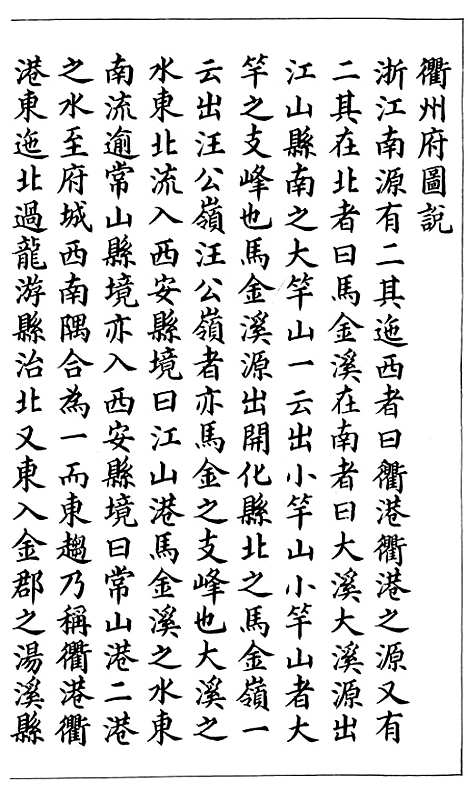 衢州府圖說
浙江南源有二其迤西者曰衢港衢港之源又有
二其在北者曰馬金溪在南者曰大溪大溪源出
江山縣南之大竿山一云出小竿山小竿山者大
竿之支峰也馬金溪源出開化縣北之馬金嶺一
云出汪公嶺汪公嶺者亦馬金之支峰也大溪之
水東北流入西安縣境曰江山港馬金溪之水東
南流逾常山縣境亦入西安縣境曰常山港二港
之水至府城西南隅合為一而東趨乃稱衢港衢
港東迤北過龍游縣治北又東入金郡之湯溪縣